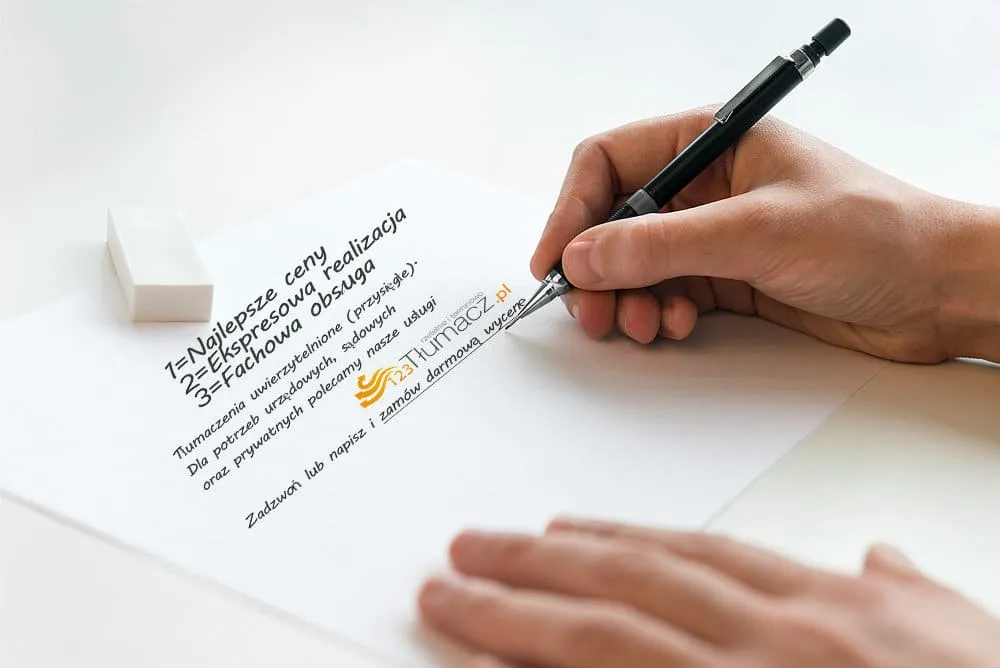 1=Najlepsze ceny
2=Ekspresowa realizacja
3=Fachowa obsługa
Tłumaczenia uwierzytelnione (przysięgłe).
Dla potrzeb urzędowych, sądowych
oraz prywatnych polecamy nasze usługi
rzetelnie i terminowo
123Tłumacz.pl
Zadzwoń lub napisz i zamów darmową wycenę